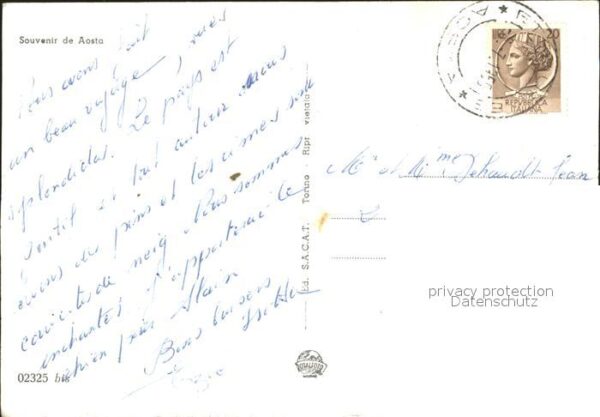 Souvenir de Aosta
Nous avons fait
un beau voyage, vues
splendides. Le pays est
et tout autour nous
avons des pins et les cimes sont
de neige. Nous sommes
enchantés. J'apporterai le
chien pour Alain
Bons baisers
02325
Ed. S.A.C.A.T. Torino Ripr. vietata
AOSTA
20
REPVBBLICA
ITALIANA
Mr et Mme Jehaudt Jean
privacy protection
Datenschutz